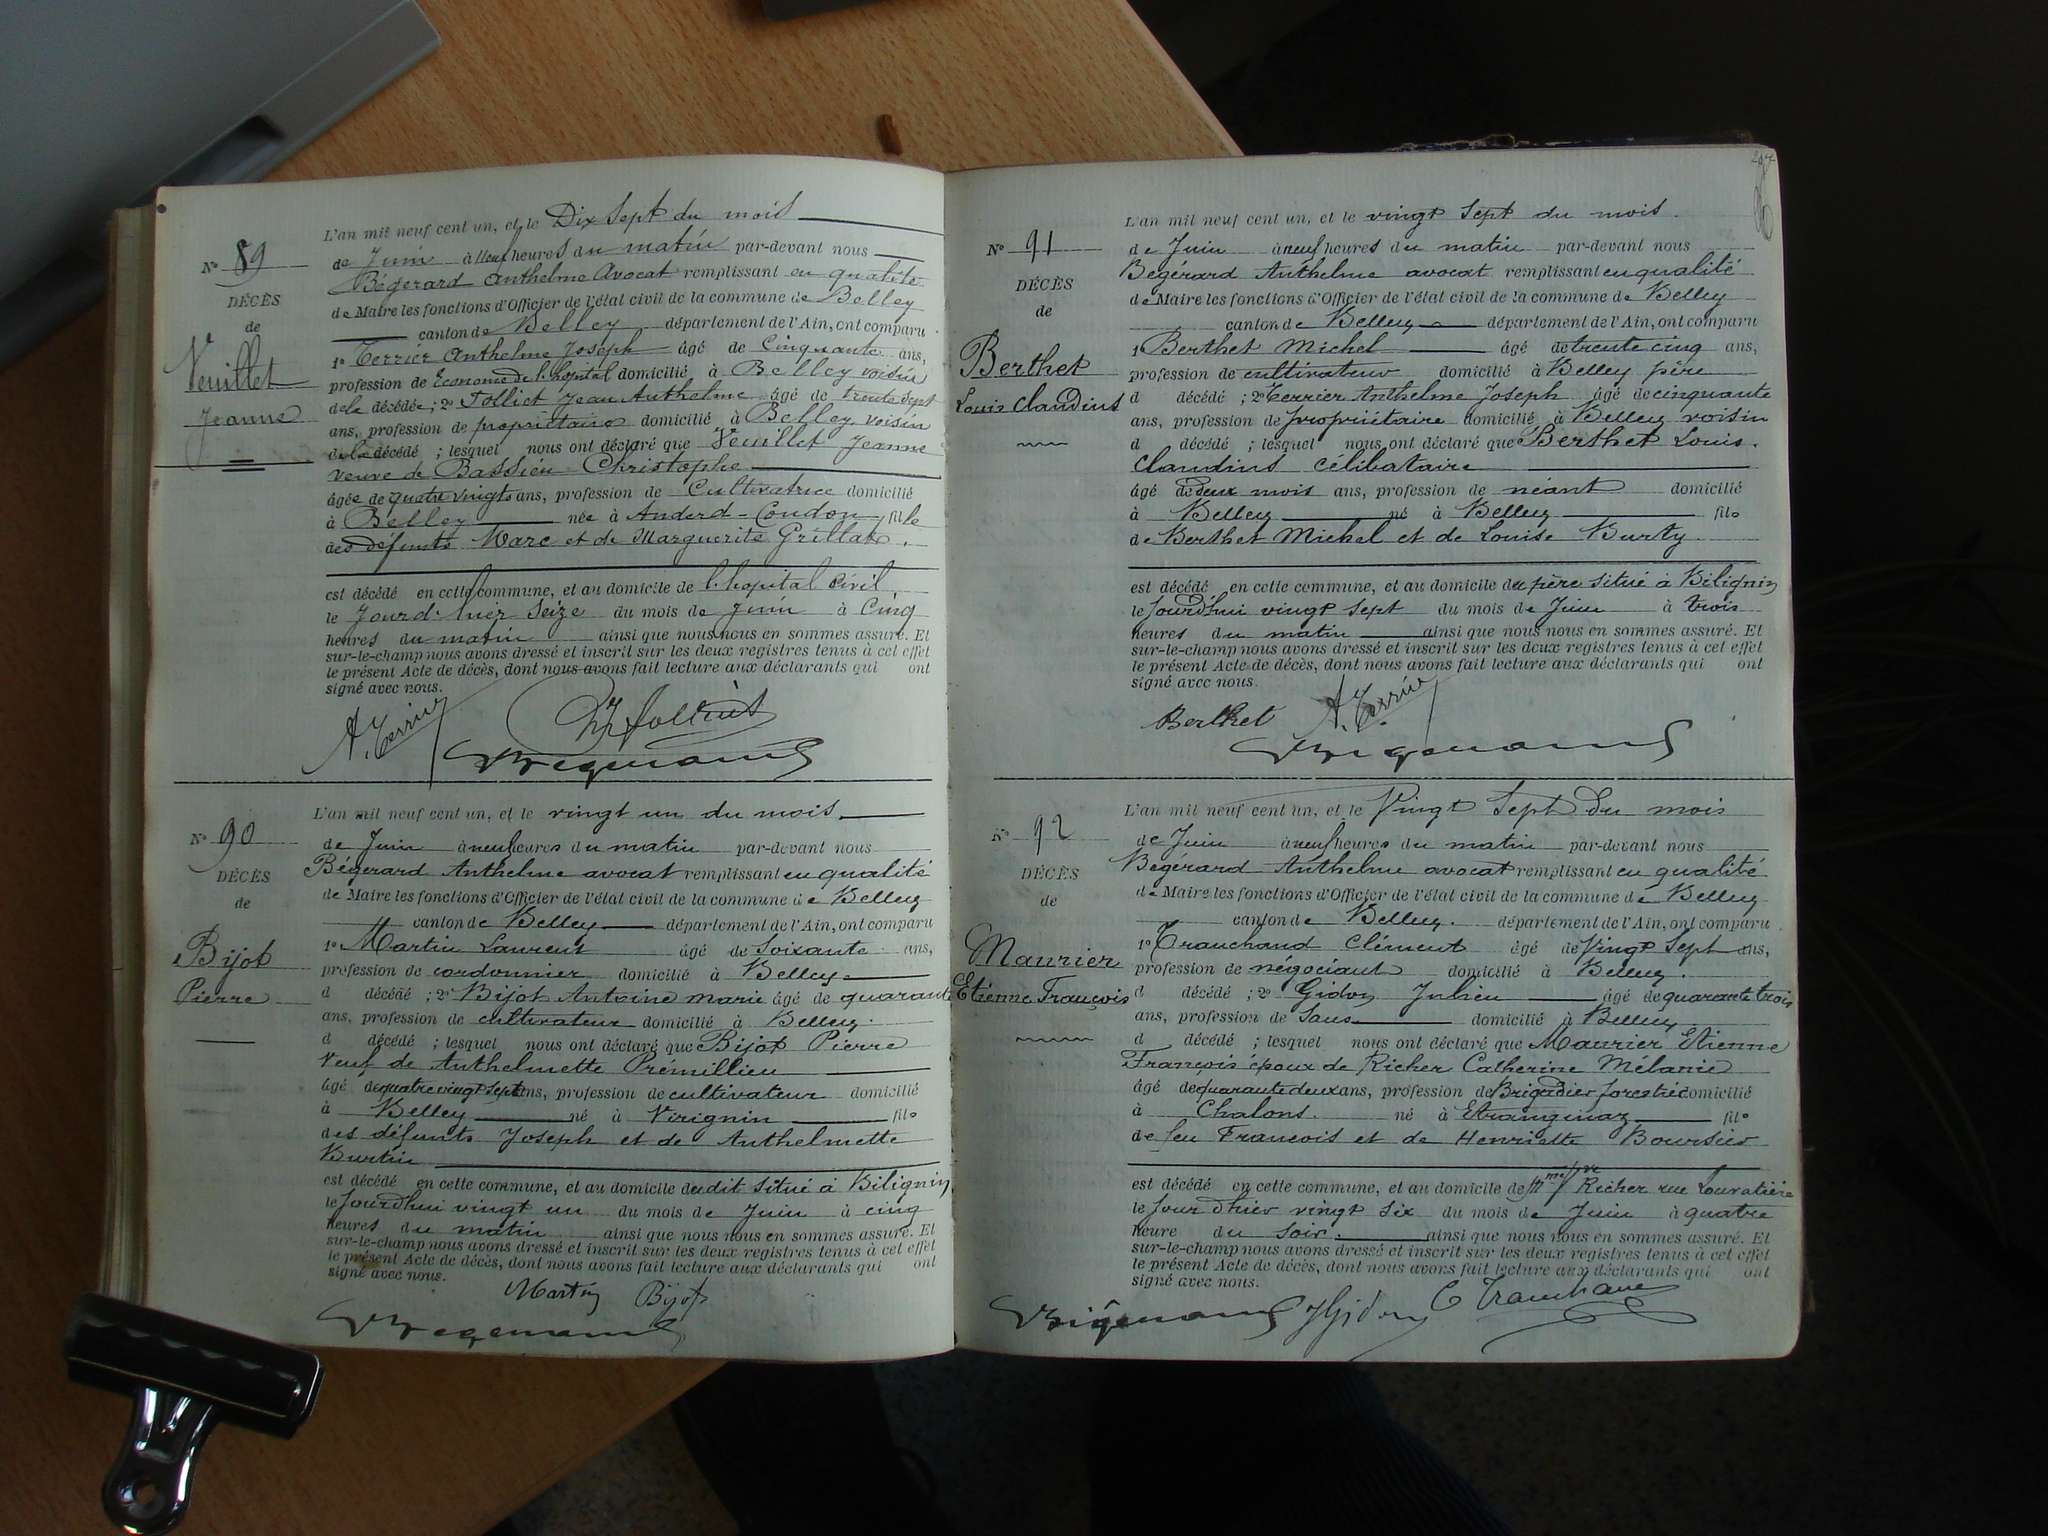 L'an mil neuf cent un, et le Dix Sept du mois
de Juin à neuf heures du matin par-devant nous
Bégerard Anthelme Avocat remplissant en qualité
de Maire les fonctions d'Officier de l'état civil de la commune de Belley
canton de Belley département de l'Ain, ont comparu
1º Terrier Anthelme Joseph âgé de Cinquante ans,
profession de Econome de l'hopital domicilié à Belley voisin
de la décédée ; 2º Jolliet Jean Anthelme âgé de trente sept
ans, profession de propriétaire domicilié à Belley voisin
de la décédé ; lesquel nous ont déclaré que Veuillet Jeanne
veuve de Bassieu Christophe
âgée de quatre vingts ans, profession de Cultivatrice domicilié
à Belley née à Anderd-Coudon fille
des défunts Marc et de Marguerite Grillat.
est décédé en cette commune, et au domicile de l'hopital civil
le Jour d'hier Seize du mois de Juin à Cinq
heures du matin ainsi que nous nous en sommes assuré. Et
sur-le-champ nous avons dressé et inscrit sur les deux registres tenus à cet effet
le présent Acte de décès, dont nous avons fait lecture aux déclarants qui ont
signé avec nous.
A. Terrier
Nº 89
DÉCÈS
de
Veuillet
Jeanne
L'an mil neuf cent un, et le vingt un du mois
de Juin à neuf heures du matin par-devant nous
Bégerard Anthelme avocat remplissant en qualité
de Maire les fonctions d'Officier de l'état civil de la commune de Belley
canton de Belley département de l'Ain, ont comparu
1º Martin Laurent âgé de Soixante ans,
profession de cordonnier domicilié à Belley
d décédé ; 2º Bijot Antoine Marie âgé de quarante
ans, profession de cultivateur domicilié à Belley
d décédé ; lesquel nous ont déclaré que Bijot Pierre
Veuf de Anthelmette Prémillieu
âgé de quatre vingt sept ans, profession de cultivateur domicilié
à Belley né à Virignin fils
des défunts Joseph et de Anthelmette
Burtin
est décédé en cette commune, et au domicile dudit situé à Bilignin
le Jourd'hui vingt un du mois de Juin à cinq
heures du matin ainsi que nous nous en sommes assuré. Et
sur-le-champ nous avons dressé et inscrit sur les deux registres tenus à cet effet
le présent Acte de décès, dont nous avons fait lecture aux déclarants qui ont
signé avec nous.
Martin Bijot
Nº 90
DÉCÈS
de
Bijot
Pierre
L'an mil neuf cent un, et le vingt Sept du mois
de Juin à neuf heures du matin par-devant nous
Begérard Anthelme avocat remplissant en qualité
de Maire les fonctions d'Officier de l'état civil de la commune de Belley
canton de Belley département de l'Ain, ont comparu
1 Berthet Michel âgé de trente cinq ans,
profession de cultivateur domicilié à Belley père
d décédé ; 2º Terrier Anthelme Joseph âgé de cinquante
ans, profession de propriétaire domicilié à Belley voisin
d décédé ; lesquel nous ont déclaré que Berthet Louis
Claudius célibataire
âgé de deux mois ans, profession de néant domicilié
à Belley né à Belley fils
de Berthet Michel et de Louise Burty
est décédé en cette commune, et au domicile du père situé à Bilignin
le Jourd'hui vingt sept du mois de Juin à trois
heures du matin ainsi que nous nous en sommes assuré. Et
sur-le-champ nous avons dressé et inscrit sur les deux registres tenus à cet effet
le présent Acte de décès, dont nous avons fait lecture aux déclarants qui ont
signé avec nous.
Berthet A. Terrier
Nº 91
DÉCÈS
de
Berthet
Louis Claudius
L'an mil neuf cent un, et le Vingt Sept du mois
de Juin à neuf heures du matin par-devant nous
Begérard Anthelme avocat remplissant en qualité
de Maire les fonctions d'Officier de l'état civil de la commune de Belley
canton de Belley. département de l'Ain, ont comparu
1º Tranchand Clément âgé de Vingt Sept ans,
profession de négociant domicilié à Belley.
d décédé ; 2º Gidon Julien âgé de quarante trois
ans, profession de Sans domicilié à Belley
d décédé ; lesquel nous ont déclaré que Maurier Etienne
François époux de Richer Catherine Mélanie
âgé de quarante deux ans, profession de Brigadier forestier domicilié
à Chalons. né à Etrainginaz fils
de feu François et de Henriette Boursier
est décédé en cette commune, et au domicile de Mme Vve Richer rue Louvatière
le Jour d'hier vingt six du mois de Juin à quatre
heure du soir. ainsi que nous nous en sommes assuré. Et
sur-le-champ nous avons dressé et inscrit sur les deux registres tenus à cet effet
le présent Acte de décès, dont nous avons fait lecture aux déclarants qui ont
signé avec nous.
JGidon C Tranchand
Nº 92
DÉCÈS
de
Maurier
Etienne François